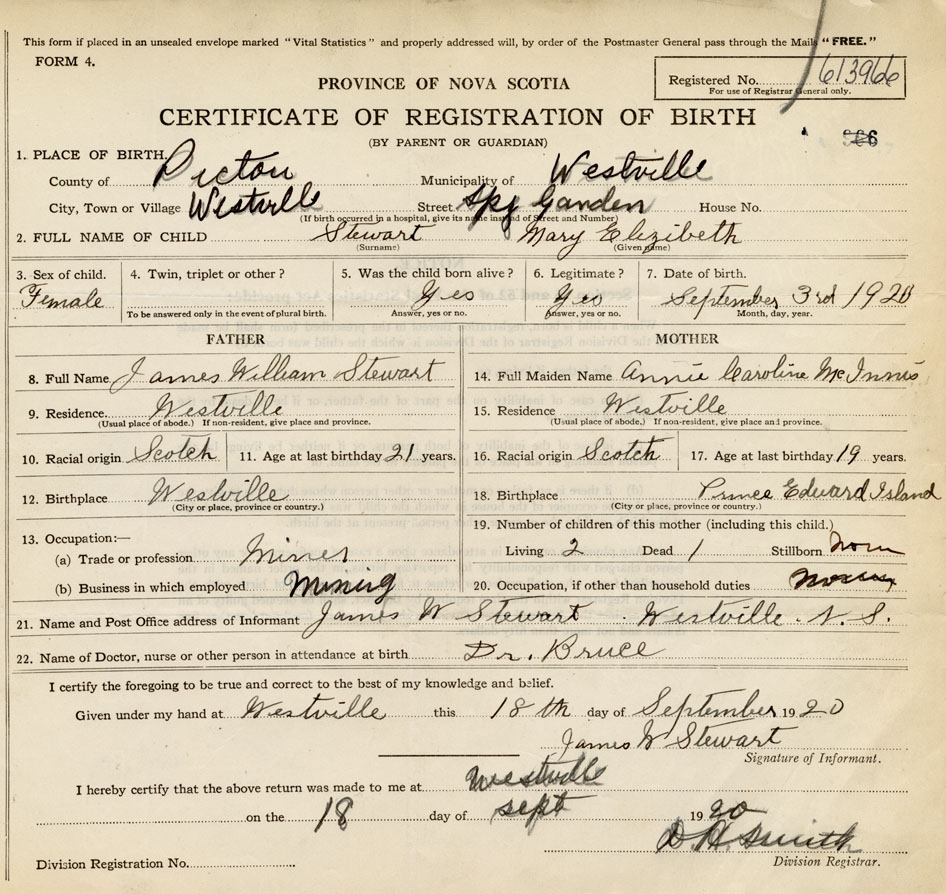 This form if placed in an unsealed envelope marked "Vital Statistics" and properly addressed will, by order of the Postmaster General pass through the Mails "FREE."
FORM 4.
Registered No. 613966
For use of Registrar General only.
PROVINCE OF NOVA SCOTIA
CERTIFICATE OF REGISTRATION OF BIRTH
(BY PARENT OR GUARDIAN)
1. PLACE OF BIRTH.
County of Pictou Municipality of Westville
City, Town or Village Westville Street Spy Ganden House No.
(If birth occurred in a hospital, give its name instead of Street and Number)
2. FULL NAME OF CHILD Stewart Mary Elizibeth
(Surname) (Given name)
3. Sex of child. 4. Twin, triplet or other? 5. Was the child born alive? 6. Legitimate? 7. Date of birth.
Female Yes Yes September 3rd 1920
To be answered only in the event of plural birth. Answer, yes or no. Answer, yes or no. Month, day, year.
FATHER MOTHER
8. Full Name James William Stewart 14. Full Maiden Name Annie Caroline McInnis
9. Residence. Westville 15. Residence Westville
(Usual place of abode.) If non-resident, give place and province. (Usual place of abode.) If non-resident, give place and province.
10. Racial origin Scotch 11. Age at last birthday 21 years. 16. Racial origin Scotch 17. Age at last birthday 19 years.
12. Birthplace Westville 18. Birthplace Prince Edward Island
(City or place, province or country.) (City or place, province or country.)
13. Occupation:— 19. Number of children of this mother (including this child.)
(a) Trade or profession Miner Living 2 Dead 1 Stillborn
(b) Business in which employed Mining 20. Occupation, if other than household duties
21. Name and Post Office address of Informant James W Stewart Westville. N. S.
22. Name of Doctor, nurse or other person in attendance at birth Dr. Bruce
I certify the foregoing to be true and correct to the best of my knowledge and belief.
Given under my hand at Westville this 18th day of September 1920
James W Stewart
Signature of Informant.
I hereby certify that the above return was made to me at Westville
on the 18 day of sept 1920
D. H. Smith
Division Registration No. Division Registrar.